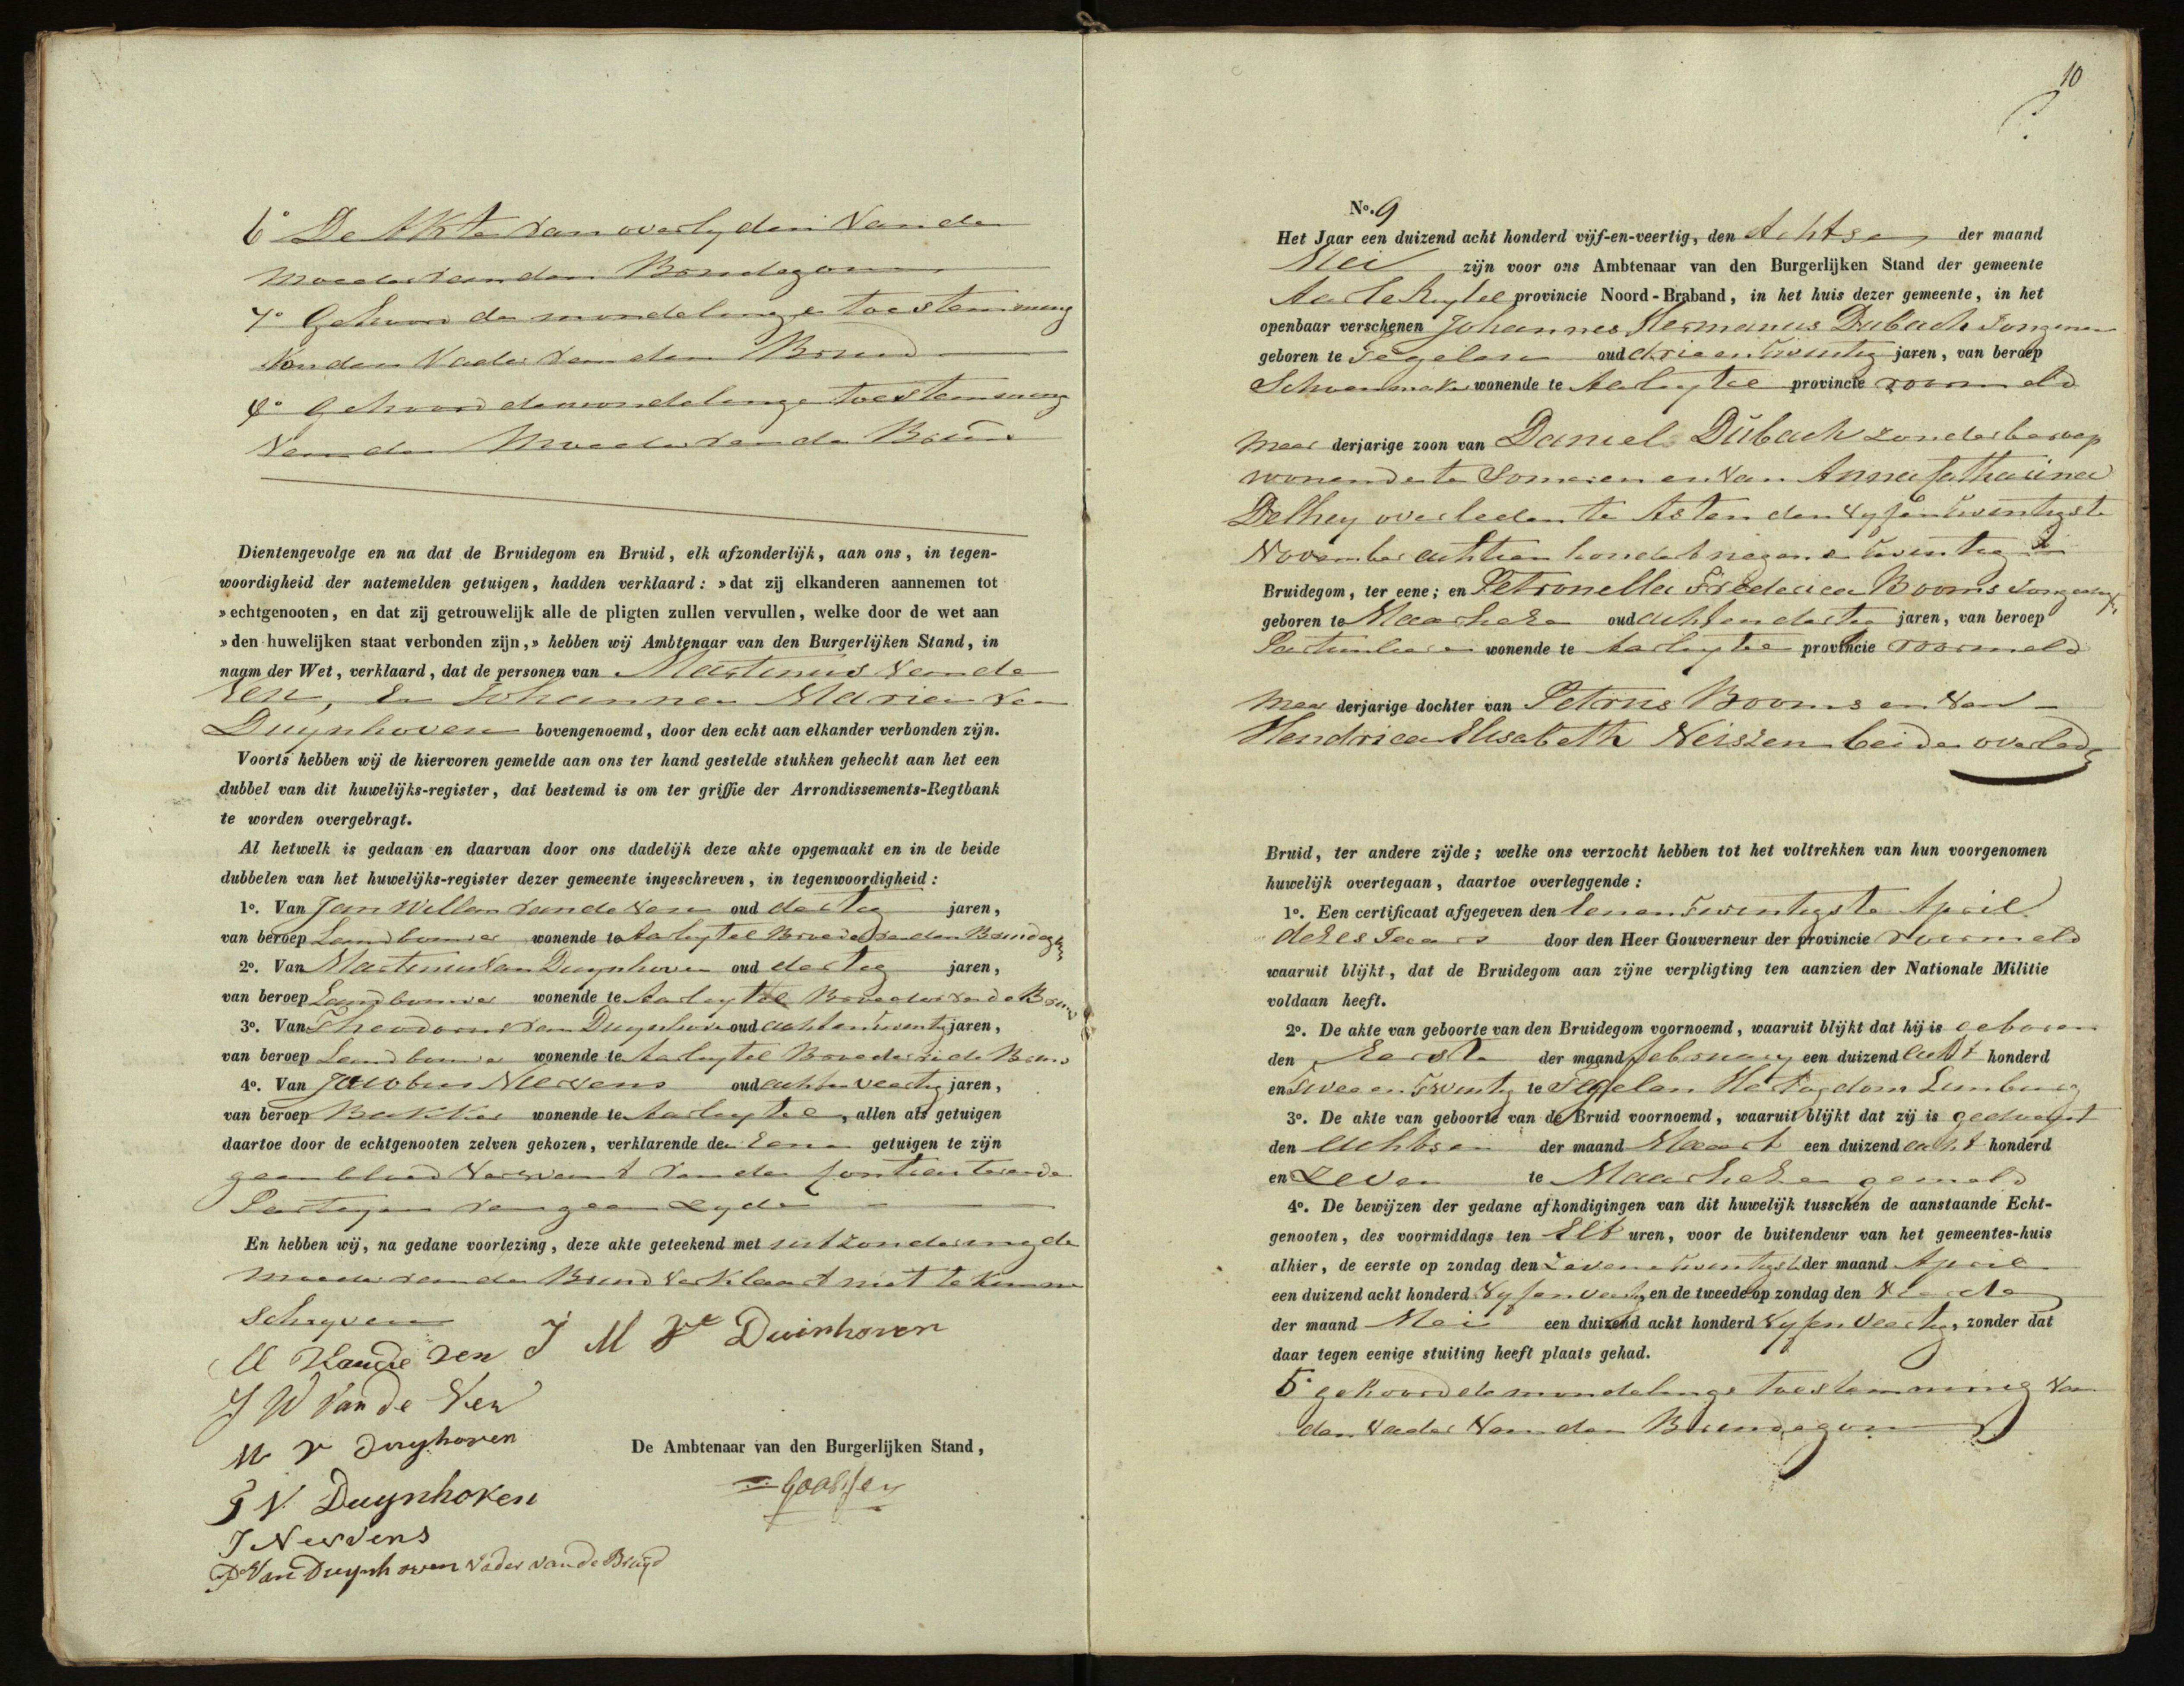 6° De Akte van overlyden van den
moeder van den Bruidegom
7° Gehoord de mondelinge toestemming
van den Vader van den Bruid
8° Gehoord de mondelinge toestemming
van den Moeder van de Bruid
Dientengevolge en na dat de Bruidegom en Bruid, elk afzonderlijk, aan ons, in tegen-
woordigheid der natemelden getuigen, hadden verklaard: »dat zij elkanderen aannemen tot
»echtgenooten, en dat zij getrouwelijk alle de pligten zullen vervullen, welke door de wet aan
»den huwelijken staat verbonden zijn,» hebben wij Ambtenaar van den Burgerlijken Stand, in
naam der Wet, verklaard, dat de personen van Martinus van de
Ven, en Johanna Maria van
Duynhoven bovengenoemd, door den echt aan elkander verbonden zijn.
Voorts hebben wij de hiervoren gemelde aan ons ter hand gestelde stukken gehecht aan het een
dubbel van dit huwelijks-register, dat bestemd is om ter griffie der Arrondissements-Regtbank
te worden overgebragt.
Al hetwelk is gedaan en daarvan door ons dadelijk deze akte opgemaakt en in de beide
dubbelen van het huwelijks-register dezer gemeente ingeschreven, in tegenwoordigheid:
1°. Van Jan Willem van de Ven oud dertig jaren,
van beroep Landbouwer wonende te Aarleyxtel Broeder van den Bruidegom
2°. Van Martinus van Duynhoven oud dertig jaren,
van beroep Landbouwer wonende te Aarleyxtel Broeder van de Bruid
3°. Van Theodorus van Duynhoven oud achtentwintig jaren,
van beroep Landbouwer wonende te Aarleyxtel Broeder van de Bruid
4°. Van Jacobus Neervens oud achtenveertig jaren,
van beroep Bakker wonende te Aarleyxtel, allen als getuigen
daartoe door de echtgenooten zelven gekozen, verklarende de Eene getuigen te zijn
geen bloed verwant van de contracterende
Partyen van geen zyde
En hebben wij, na gedane voorlezing, deze akte geteekend met uitzondering de
moeder van de Bruid verklaart niet te kunnen
schryven
M Van de Ven J M V Duinhoven
J W Van de Ven
M V Duyhoven
De Ambtenaar van den Burgerlijken Stand,
T V Duynhoven
Goossen
J Neervens
P Van Duynhoven Vader van de Bruyd
10
N°. 9
Het Jaar een duizend acht honderd vijf-en-veertig, den Achtsen der maand
Mei zijn voor ons Ambtenaar van den Burgerlijken Stand der gemeente
Aarle Rixtel provincie Noord-Braband, in het huis dezer gemeente, in het
openbaar verschenen Johannes Hermanus Dubach Jongman
geboren te Tegelen oud drie en twintig jaren, van beroep
Schoenmaker wonende te Aarleyxtel provincie voormeld
Meer derjarige zoon van Daniel Dubach zonder beroep
wonende te Someren en van Anna Catharina
Delhey overleden te Asten den vyfentwintigste
November achttien honderd negen en twintig
Bruidegom, ter eene; en Petronella Frederica Booms Jongedogter
geboren te Maasheze oud achtendertig jaren, van beroep
Particuliere wonende te Aarleyxtel provincie voormeld
Meer derjarige dochter van Petrus Booms en van
Hendrica Elisabeth Neissen beiden overleden
Bruid, ter andere zijde; welke ons verzocht hebben tot het voltrekken van hun voorgenomen
huwelijk overtegaan, daartoe overleggende:
1°. Een certificaat afgegeven den eenentwintigste April
dezes Jaars door den Heer Gouverneur der provincie voormeld
waaruit blijkt, dat de Bruidegom aan zijne verpligting ten aanzien der Nationale Militie
voldaan heeft.
2°. De akte van geboorte van den Bruidegom voornoemd, waaruit blijkt dat hij is geboren
den Eerste der maand february een duizend acht honderd
en twee en twintig te Tegelen Hertogdom Limburg
3°. De akte van geboorte van de Bruid voornoemd, waaruit blijkt dat zij is gedoopt
den Achtsen der maand Maart een duizend acht honderd
en Zeven te Maasheze gemeld
4°. De bewijzen der gedane afkondigingen van dit huwelijk tusschen de aanstaande Echt-
genooten, des voormiddags ten Elf uren, voor de buitendeur van het gemeentes-huis
alhier, de eerste op zondag den zevenentwintigste der maand April
een duizend acht honderd Vyfenveertig, en de tweede op zondag den Vierde
der maand Mei een duizend acht honderd Vyfenveertig, zonder dat
daar tegen eenige stuiting heeft plaats gehad.
5° gehoord de mondelinge toestemming van
den Vader van den Bruidegom